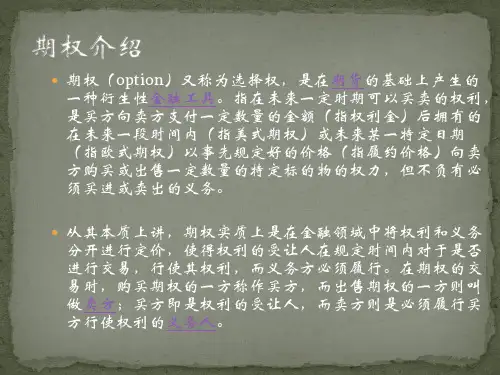 期权介绍
期权（option）又称为选择权，是在期货的基础上产生的
一种衍生性金融工具。指在未来一定时期可以买卖的权利，
是买方向卖方支付一定数量的金额（指权利金）后拥有的
在未来一段时间内（指美式期权）或未来某一特定日期
（指欧式期权）以事先规定好的价格（指履约价格）向卖
方购买或出售一定数量的特定标的物的权力，但不负有必
须买进或卖出的义务。
从其本质上讲，期权实质上是在金融领域中将权利和义务
分开进行定价，使得权利的受让人在规定时间内对于是否
进行交易，行使其权利，而义务方必须履行。在期权的交
易时，购买期权的一方称作买方，而出售期权的一方则叫
做卖方；买方即是权利的受让人，而卖方则是必须履行买
方行使权利的义务人。